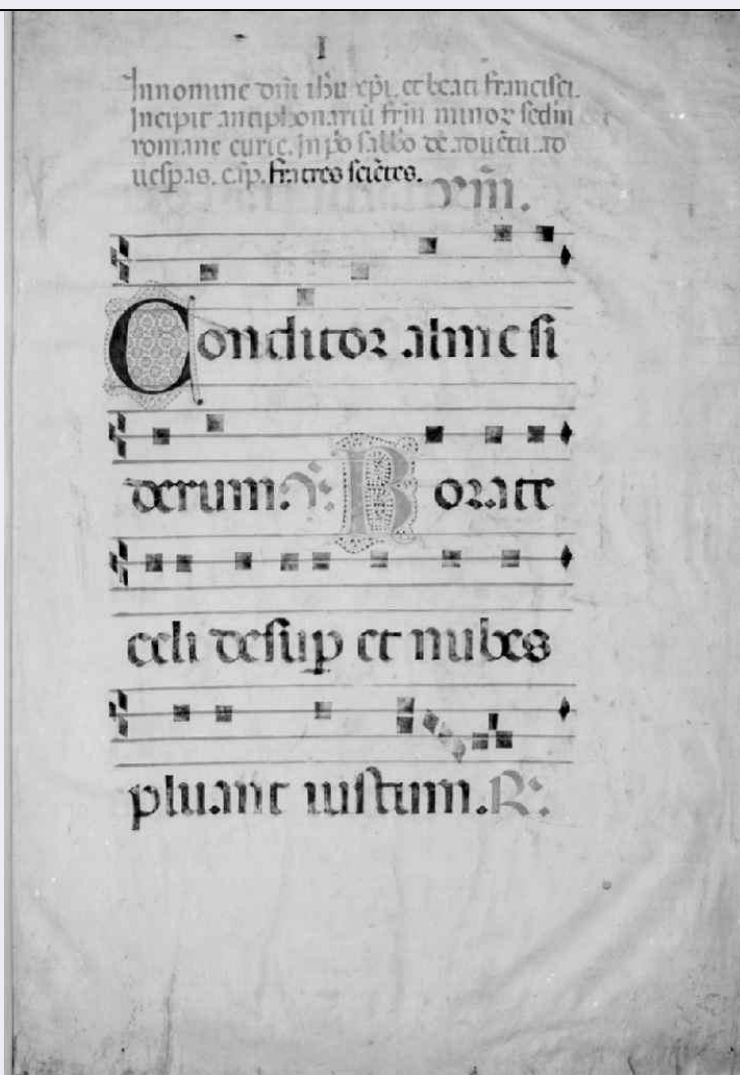 I
In nomine dñi ihu xpi. et beati francisci.
Incipit antiphonariũ frm̃ minoꝝ scdm
romane curie. In p̊o sabb̊o de aduẽtu. ad
uesp̃as. cap̃. fratres sciẽtes.
ym̃.
Conditor alme si
derum. ℣. Rorate
celi desuꝑ et nubes
pluant iustum. ℟.